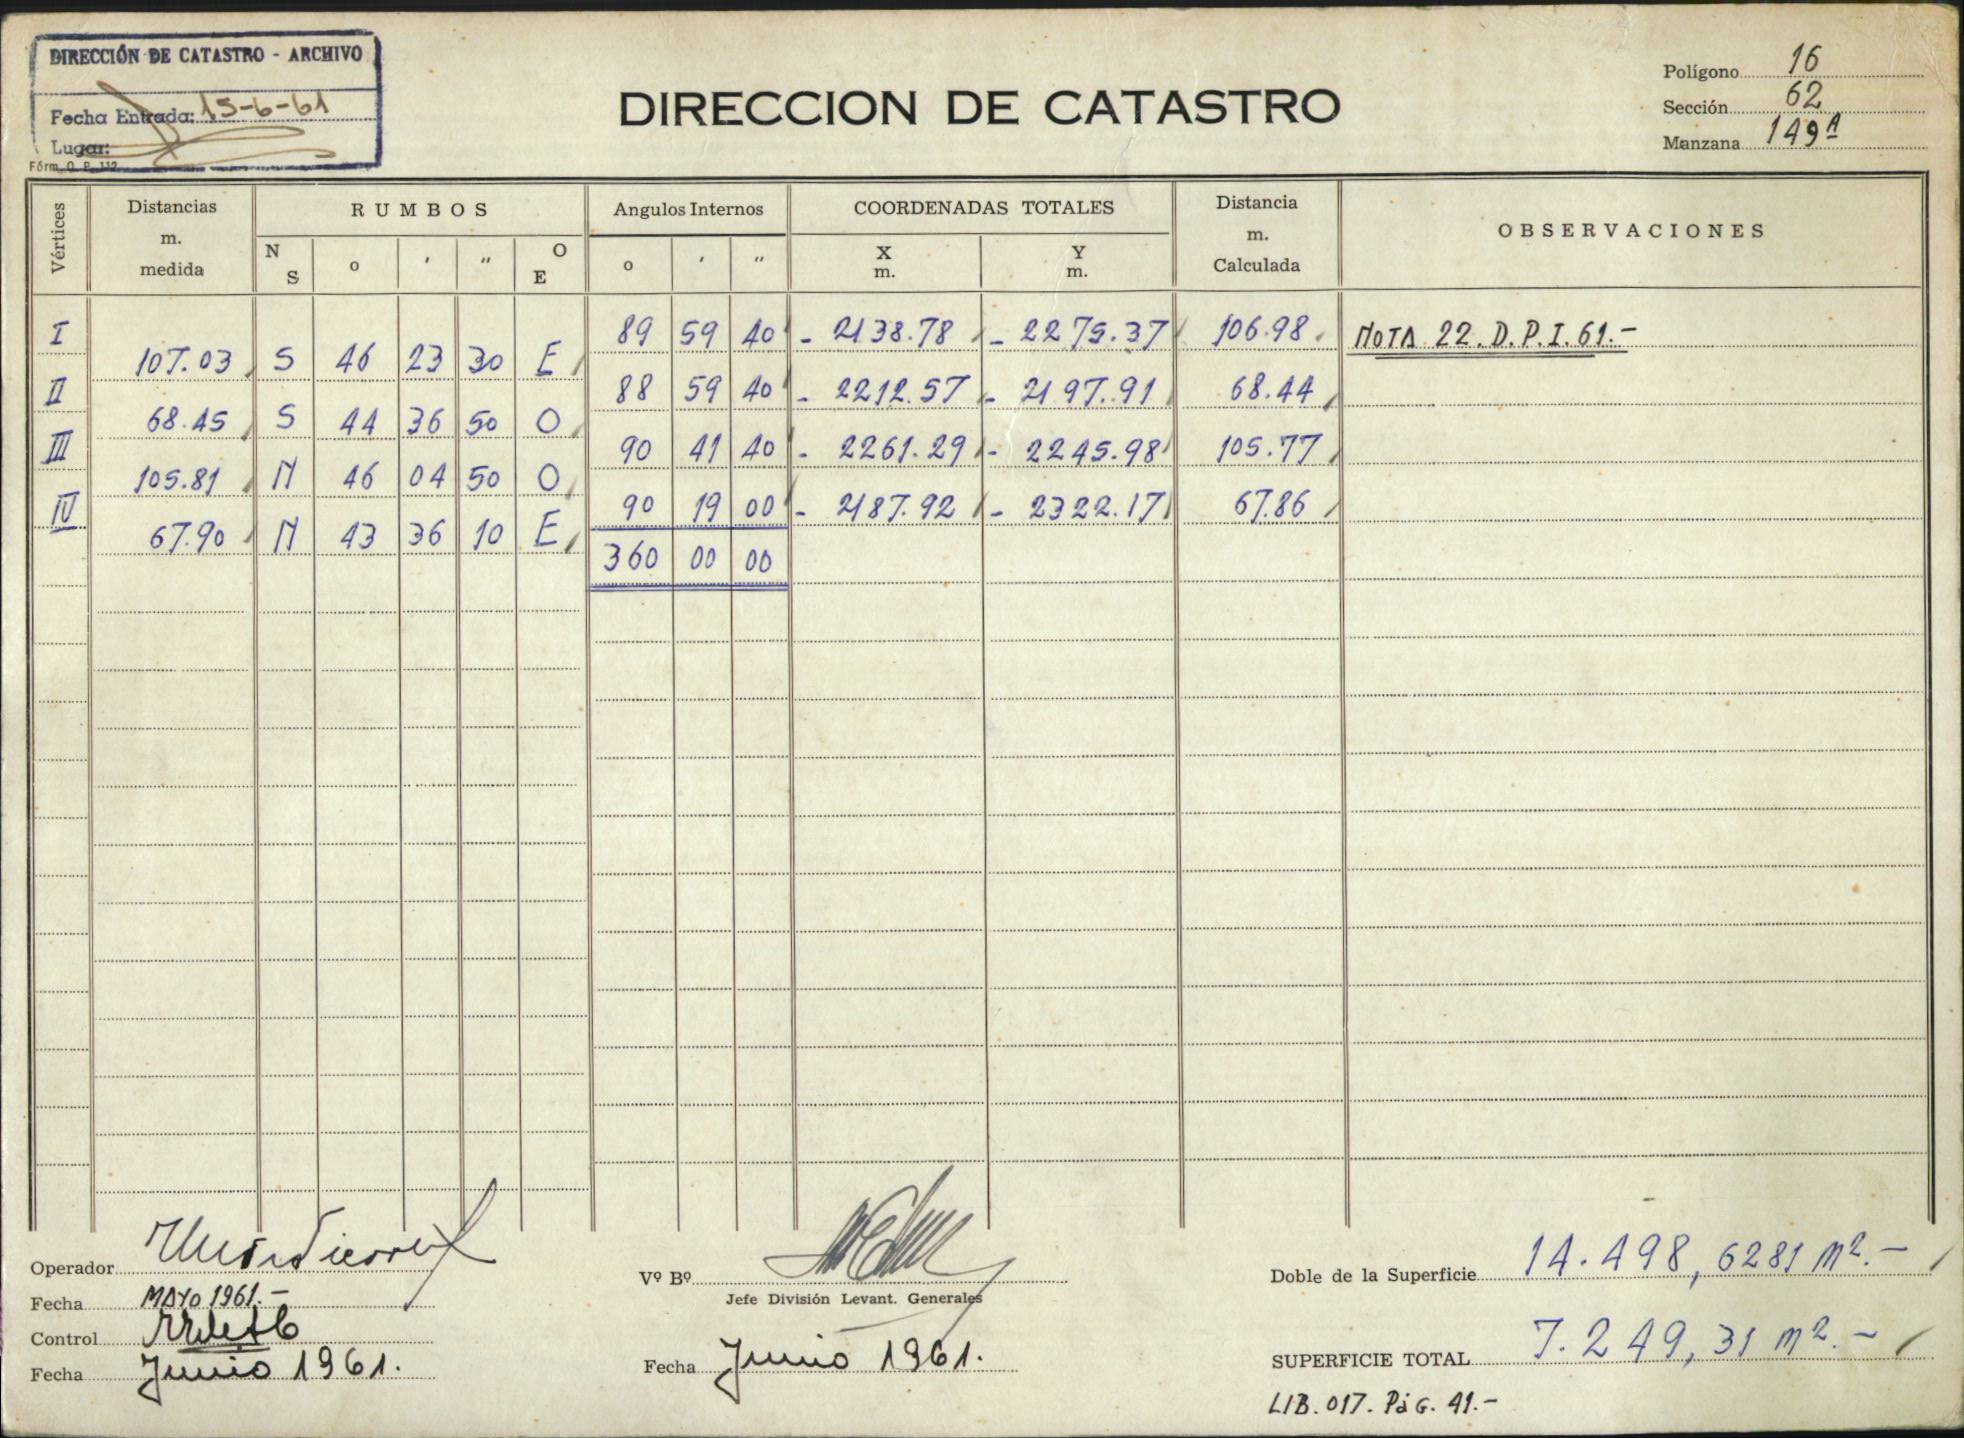 DIRECCIÓN DE CATASTRO - ARCHIVO
Fecha Entrada: 15-6-61
Lugar:
Fórm. O. P. 112
DIRECCION DE CATASTRO
Polígono 16
Sección 62
Manzana 149A
Vértices
Distancias m. medida
RUMBOS
N S o ' " O E
Angulos Internos
o ' "
COORDENADAS TOTALES
X m. Y m.
Distancia m. Calculada
OBSERVACIONES
I 89 59 40 - 2138.78 - 2275.37 106.98 NOTA 22. D.P.I. 61.-
107.03 S 46 23 30 E
II 88 59 40 - 2212.57 - 2197.91 68.44
68.45 S 44 36 50 O
III 90 41 40 - 2261.29 - 2245.98 105.77
105.81 N 46 04 50 O
IV 90 19 00 - 2187.92 - 2322.17 67.86
67.90 N 43 36 10 E
360 00 00
Operador
Fecha MAYO 1961.-
Control
Fecha Junio 1961.
Vº Bº
Jefe División Levant. Generales
Fecha Junio 1961.
Doble de la Superficie 14.498,6281 m2.-
SUPERFICIE TOTAL 7.249,31 m2.-
LIB. 017. Pág. 41.-